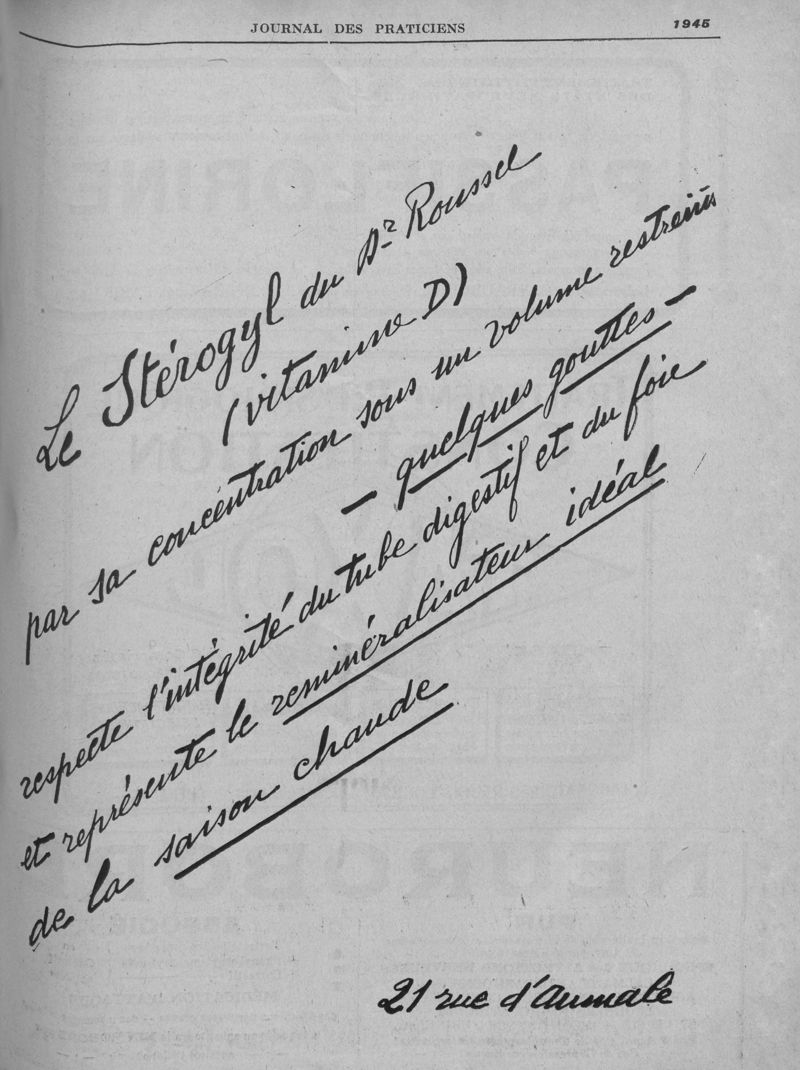 JOURNAL DES PRATICIENS
1945
Le Stérogyl du Dr Roussel
(vitamine D)
par sa concentration sous un volume restreint
— quelques gouttes —
respecte l'intégrité du tube digestif et du foie
et représente le reminéralisateur idéal
de la saison chaude
21 rue d'Aumale